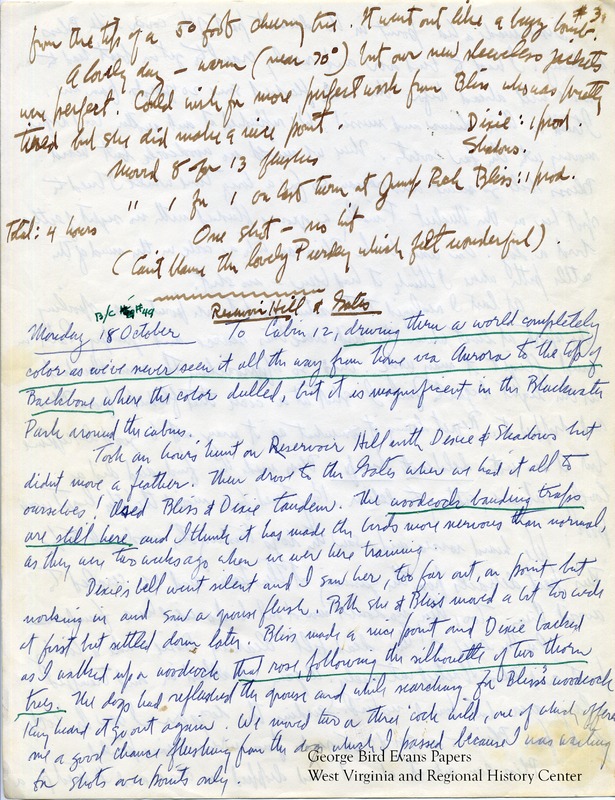 #3
from the top of a 50 foot cherry tree. It went out like a buzz bomb.
A lovely day – warm (near 70°) but our new sleeveless jackets
were perfect. Could wish for more perfect work from Bliss who was pretty
tired but she did make a nice point.
Dixie: 1 prod.
Shadows:
Moved 8 for 13 flushes
" " 1 for 1 on last turn at Jump Rock Bliss: 1 prod.
Total: 4 hours
One shot – no hit
(Can't blame the lovely Purdey which felt wonderful).
B/C #49
Reservoir Hill & Gates
Monday 18 October To Cabin 12, driving thru a world completely
color as we've never seen it all the way from home via Aurora to the top of
Backbone where the color dulled, but it is magnificent in the Blackwater
Park around the cabins.
Took an hour's hunt on Reservoir Hill with Dixie & Shadows but
didn't move a feather. Then drove to the Gates where we had it all to
ourselves! Used Bliss & Dixie tandem. The woodcock banding traps
are still here and I think it has made the birds more nervous than normal,
as they were two weeks ago when we were here training.
Dixie's bell went silent and I saw her, too far out, on point but
working in and saw a grouse flush. Both she & Bliss moved a bit too wide
at first but settled down later. Bliss made a nice point and Dixie backed
as I walked up a woodcock that rose, following the silhouette of two thorn
trees. The dogs had reflushed the grouse and while searching for Bliss's woodcock
they heard it go out again. We moved two or three 'cock wild, one of which offered
me a good chance flushing from the dogs which I passed because I was waiting
for shots over points only.
George Bird Evans Papers
West Virginia and Regional History Center